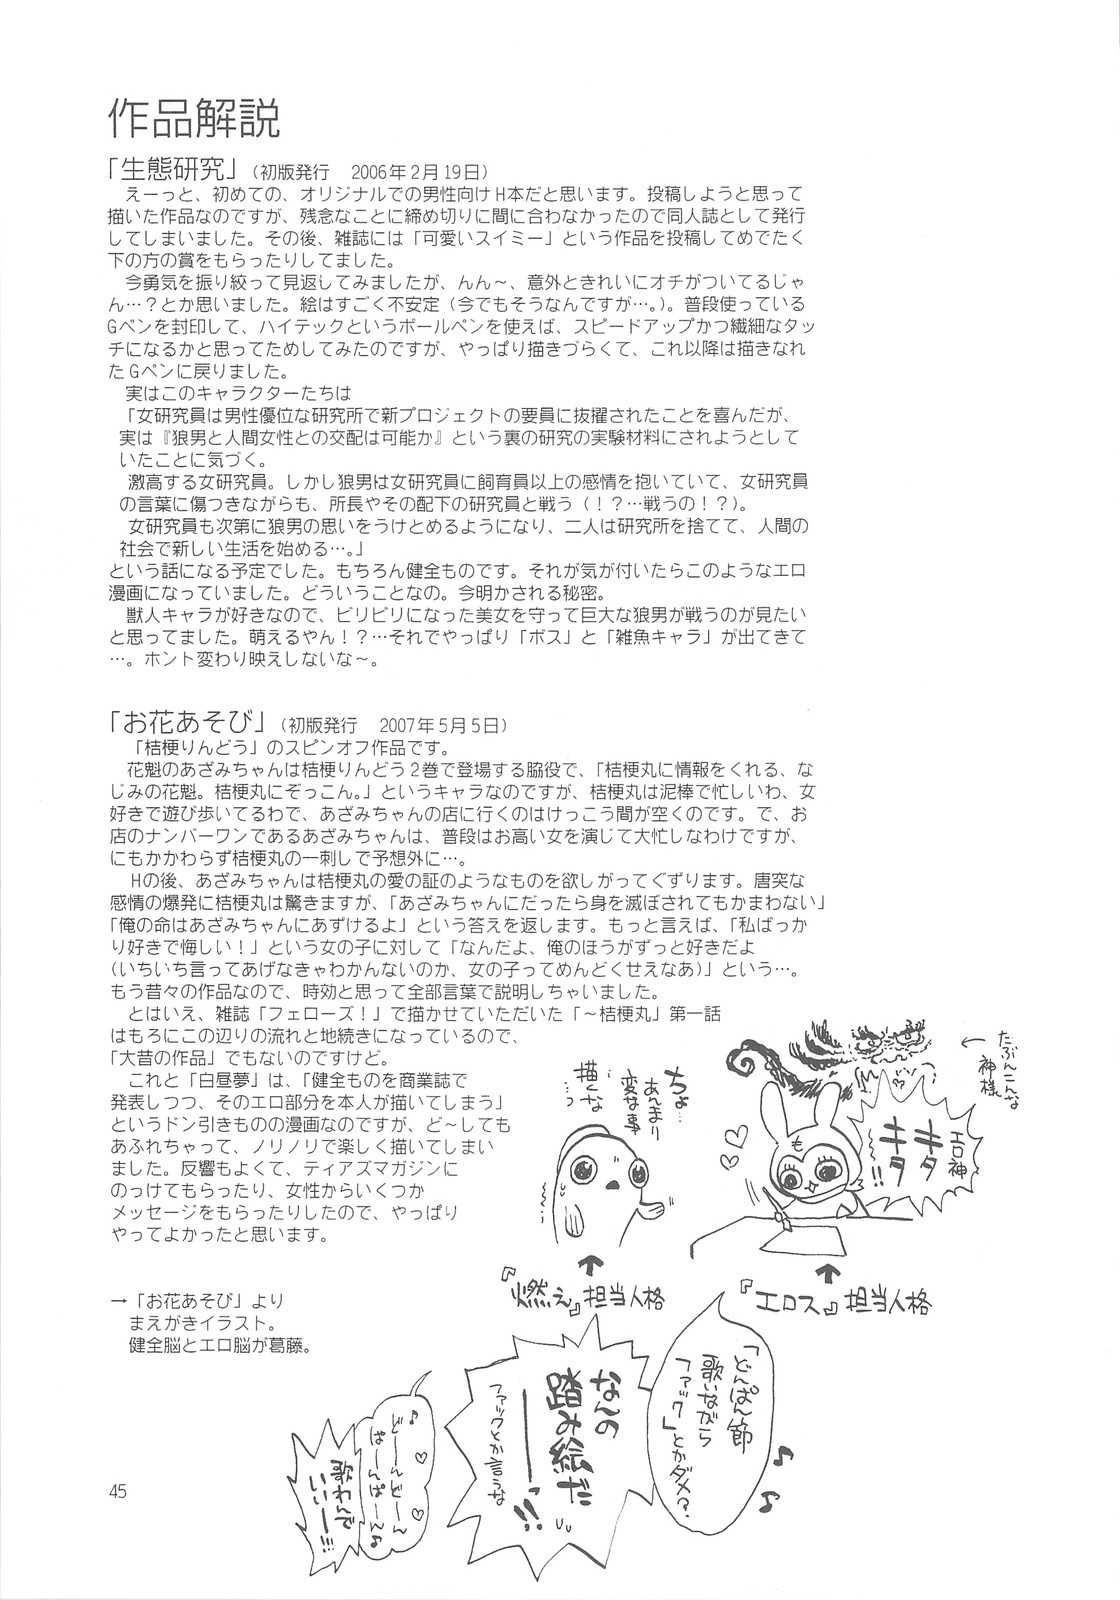 作品解説
「生態研究」（初版発行　2006年2月19日）
えーっと、初めての、オリジナルでの男性向けH本だと思います。投稿しようと思って
描いた作品なのですが、残念なことに締め切りに間に合わなかったので同人誌として発行
してしまいました。その後、雑誌には「可愛いスイミー」という作品を投稿してめでたく
下の方の賞をもらったりしてました。
今勇気を振り絞って見返してみましたが、んん～、意外ときれいにオチがついてるじゃ
ん…？とか思いました。絵はすごく不安定（今でもそうなんですが…。）。普段使っている
Gペンを封印して、ハイテックというボールペンを使えば、スピードアップかつ繊細なタッ
チになるかと思ってためしてみたのですが、やっぱり描きづらくて、これ以降は描きなれ
たGペンに戻りました。
実はこのキャラクターたちは
「女研究員は男性優位な研究所で新プロジェクトの要員に抜擢されたことを喜んだが、
実は『狼男と人間女性との交配は可能か』という裏の研究の実験材料にされようとして
いたことに気づく。
激高する女研究員。しかし狼男は女研究員に飼育員以上の感情を抱いていて、女研究員
の言葉に傷つきながらも、所長やその配下の研究員と戦う（！？…戦うの！？）。
女研究員も次第に狼男の思いをうけとめるようになり、二人は研究所を捨てて、人間の
社会で新しい生活を始める…。」
という話になる予定でした。もちろん健全ものです。それが気が付いたらこのようなエロ
漫画になっていました。どういうことなの。今明かされる秘密。
獣人キャラが好きなので、ビリビリになった美女を守って巨大な狼男が戦うのが見たい
と思ってました。萌えるやん！？…それでやっぱり「ボス」と「雑魚キャラ」が出てきて
…。ホント変わり映えしないな～。
「お花あそび」（初版発行　2007年5月5日）
「桔梗りんどう」のスピンオフ作品です。
花魁のあざみちゃんは桔梗りんどう2巻で登場する脇役で、「桔梗丸に情報をくれる、な
じみの花魁。桔梗丸にぞっこん。」というキャラなのですが、桔梗丸は泥棒で忙しいわ、女
好きで遊び歩いてるわで、あざみちゃんの店に行くのはけっこう間が空くのです。で、お
店のナンバーワンであるあざみちゃんは、普段はお高い女を演じて大忙しなわけですが、
にもかかわらず桔梗丸の一刺しで予想外に…。
Hの後、あざみちゃんは桔梗丸の愛の証のようなものを欲しがってぐずります。唐突な
感情の爆発に桔梗丸は驚きますが、「あざみちゃんにだったら身を滅ぼされてもかまわない」
「俺の命はあざみちゃんにあずけるよ」という答えを返します。もっと言えば、「私ばっか
り好きで悔しい！」という女の子に対して「なんだよ、俺のほうがずっと好きだよ
（いちいち言ってあげなきゃわかんないのか、女の子ってめんどくせえなあ）」という…。
もう昔々の作品なので、時効と思って全部言葉で説明しちゃいました。
とはいえ、雑誌「フェローズ！」で描かせていただいた「～桔梗丸」第一話
はもろにこの辺りの流れと地続きになっているので、
「大昔の作品」でもないのですけど。
これと「白昼夢」は、「健全ものを商業誌で
発表しつつ、そのエロ部分を本人が描いてしまう」
というドン引きものの漫画なのですが、ど～しても
あふれちゃって、ノリノリで楽しく描いてしまい
ました。反響もよくて、ティアズマガジンに
のっけてもらったり、女性からいくつか
メッセージをもらったりしたので、やっぱり
やってよかったと思います。
→「お花あそび」より
まえがきイラスト。
健全脳とエロ脳が葛藤。
←たぶんこんな
神様
エロ神
キタ
キタ
…!!
ちょ…
あんまり
変な事
描くな
…っ
も
『燃え』担当人格
『エロス』担当人格
「どんぱん節
歌いながら
ファック」とかダメ？
なんの
踏み絵だ
ーーっ!!
ファックとか言うな
どーんどーん
ぱーんぱーん♪
歌わんで
いいーー!!!
45